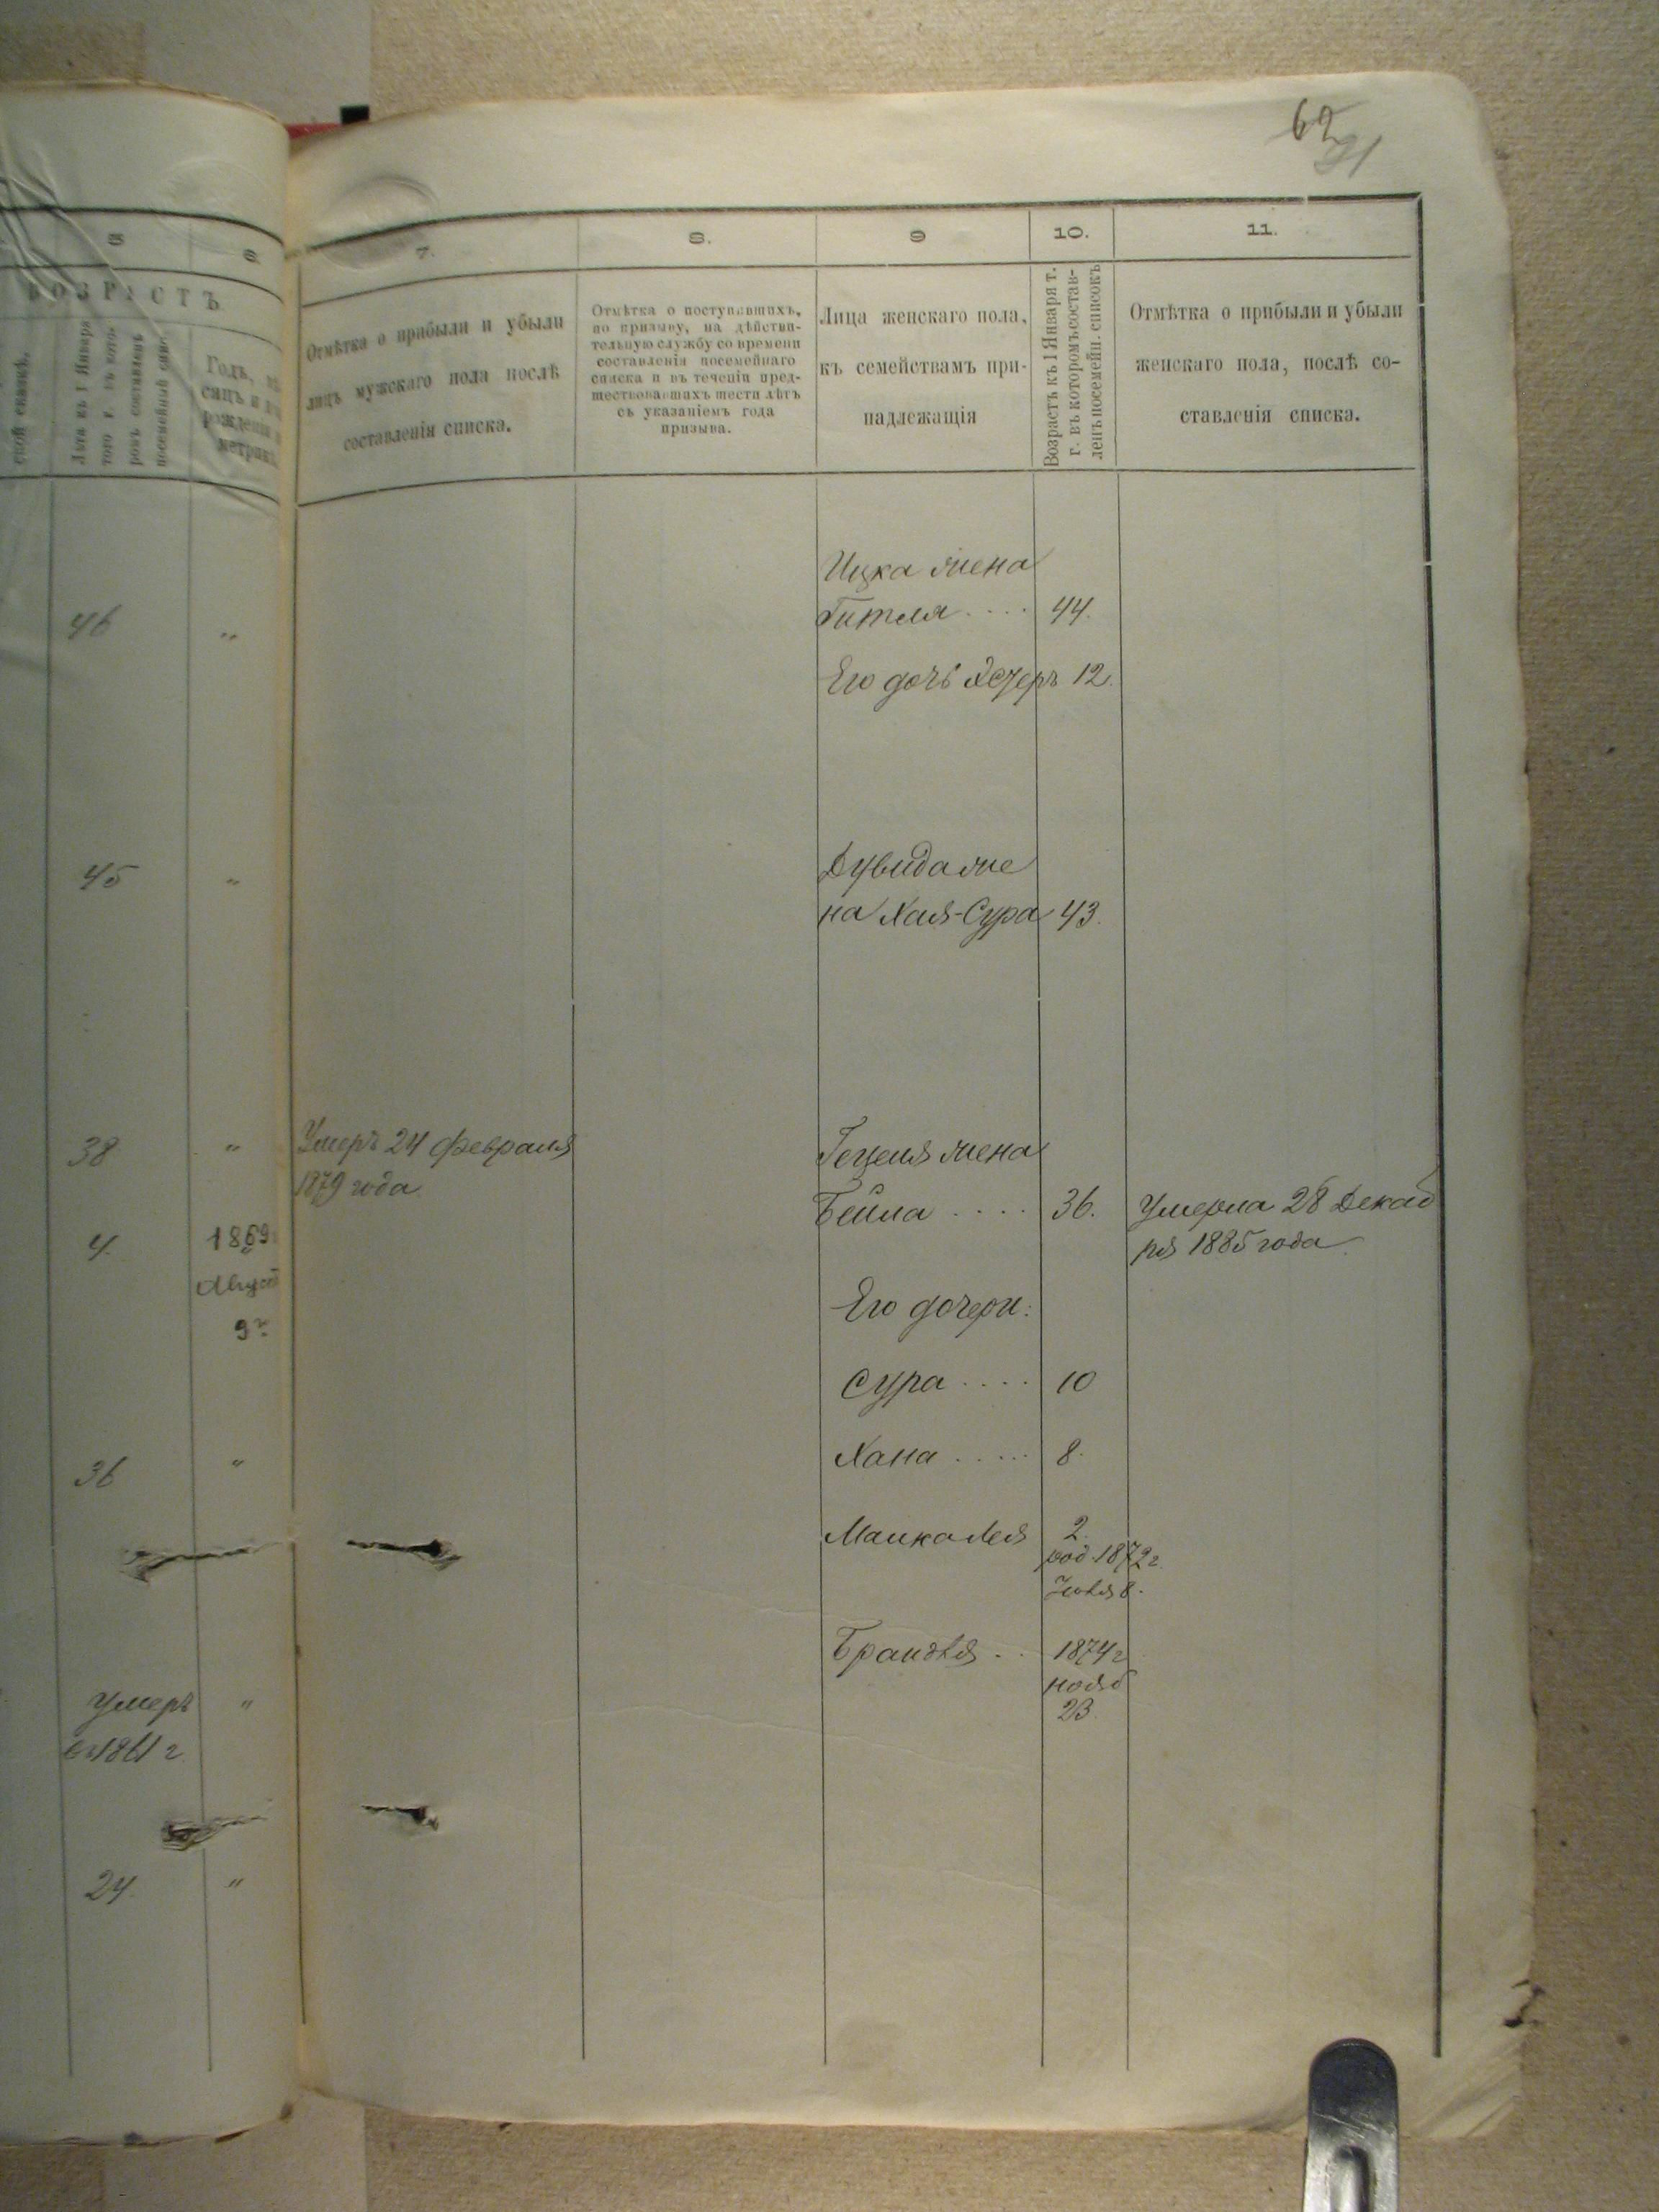 62
5
6.
7.
8.
9
10.
11.
ВОЗРАСТЪ
Лѣта къ 1 Января
того г. въ кото-
ромъ составленъ
посемейный спи-
Годъ, мѣ-
сяцъ и
рожденія
метрик
Отмѣтка о прибыли и убыли
лицъ мужскаго пола послѣ
составленія списка.
Отмѣтка о поступившихъ,
по призыву, на дѣйстви-
тельную службу со времени
составленія посемейнаго
списка и въ теченіи пред-
шествовавшихъ шести лѣтъ
съ указаніемъ года
призыва.
Лица женскаго пола,
къ семействамъ при-
надлежащія
Возрастъ къ 1 Января т.
г. въ которомъ состав-
ленъ посемейн. списокъ
Отмѣтка о прибыли и убыли
женскаго пола, послѣ со-
ставленія списка.
Ицка жена
46 " Гитля .... 44.
Его дочь Эстеръ 12.
45 " Дувида же
на Хая-Сура 43.
38 " Умеръ 24 Февраля
1879 года
Гецеля жена
Бейла .... 36. Умерла 28 Декаб
ря 1885 года
4. 1869
Август
9
Его дочери:
Сура .... 10
36 " Хана ..... 8.
Малка Лея 2.
род. 1872 г.
Іюля 8.
Брайндля .. 1874 г
нояб
23.
умеръ "
въ 1861 г.
24. "